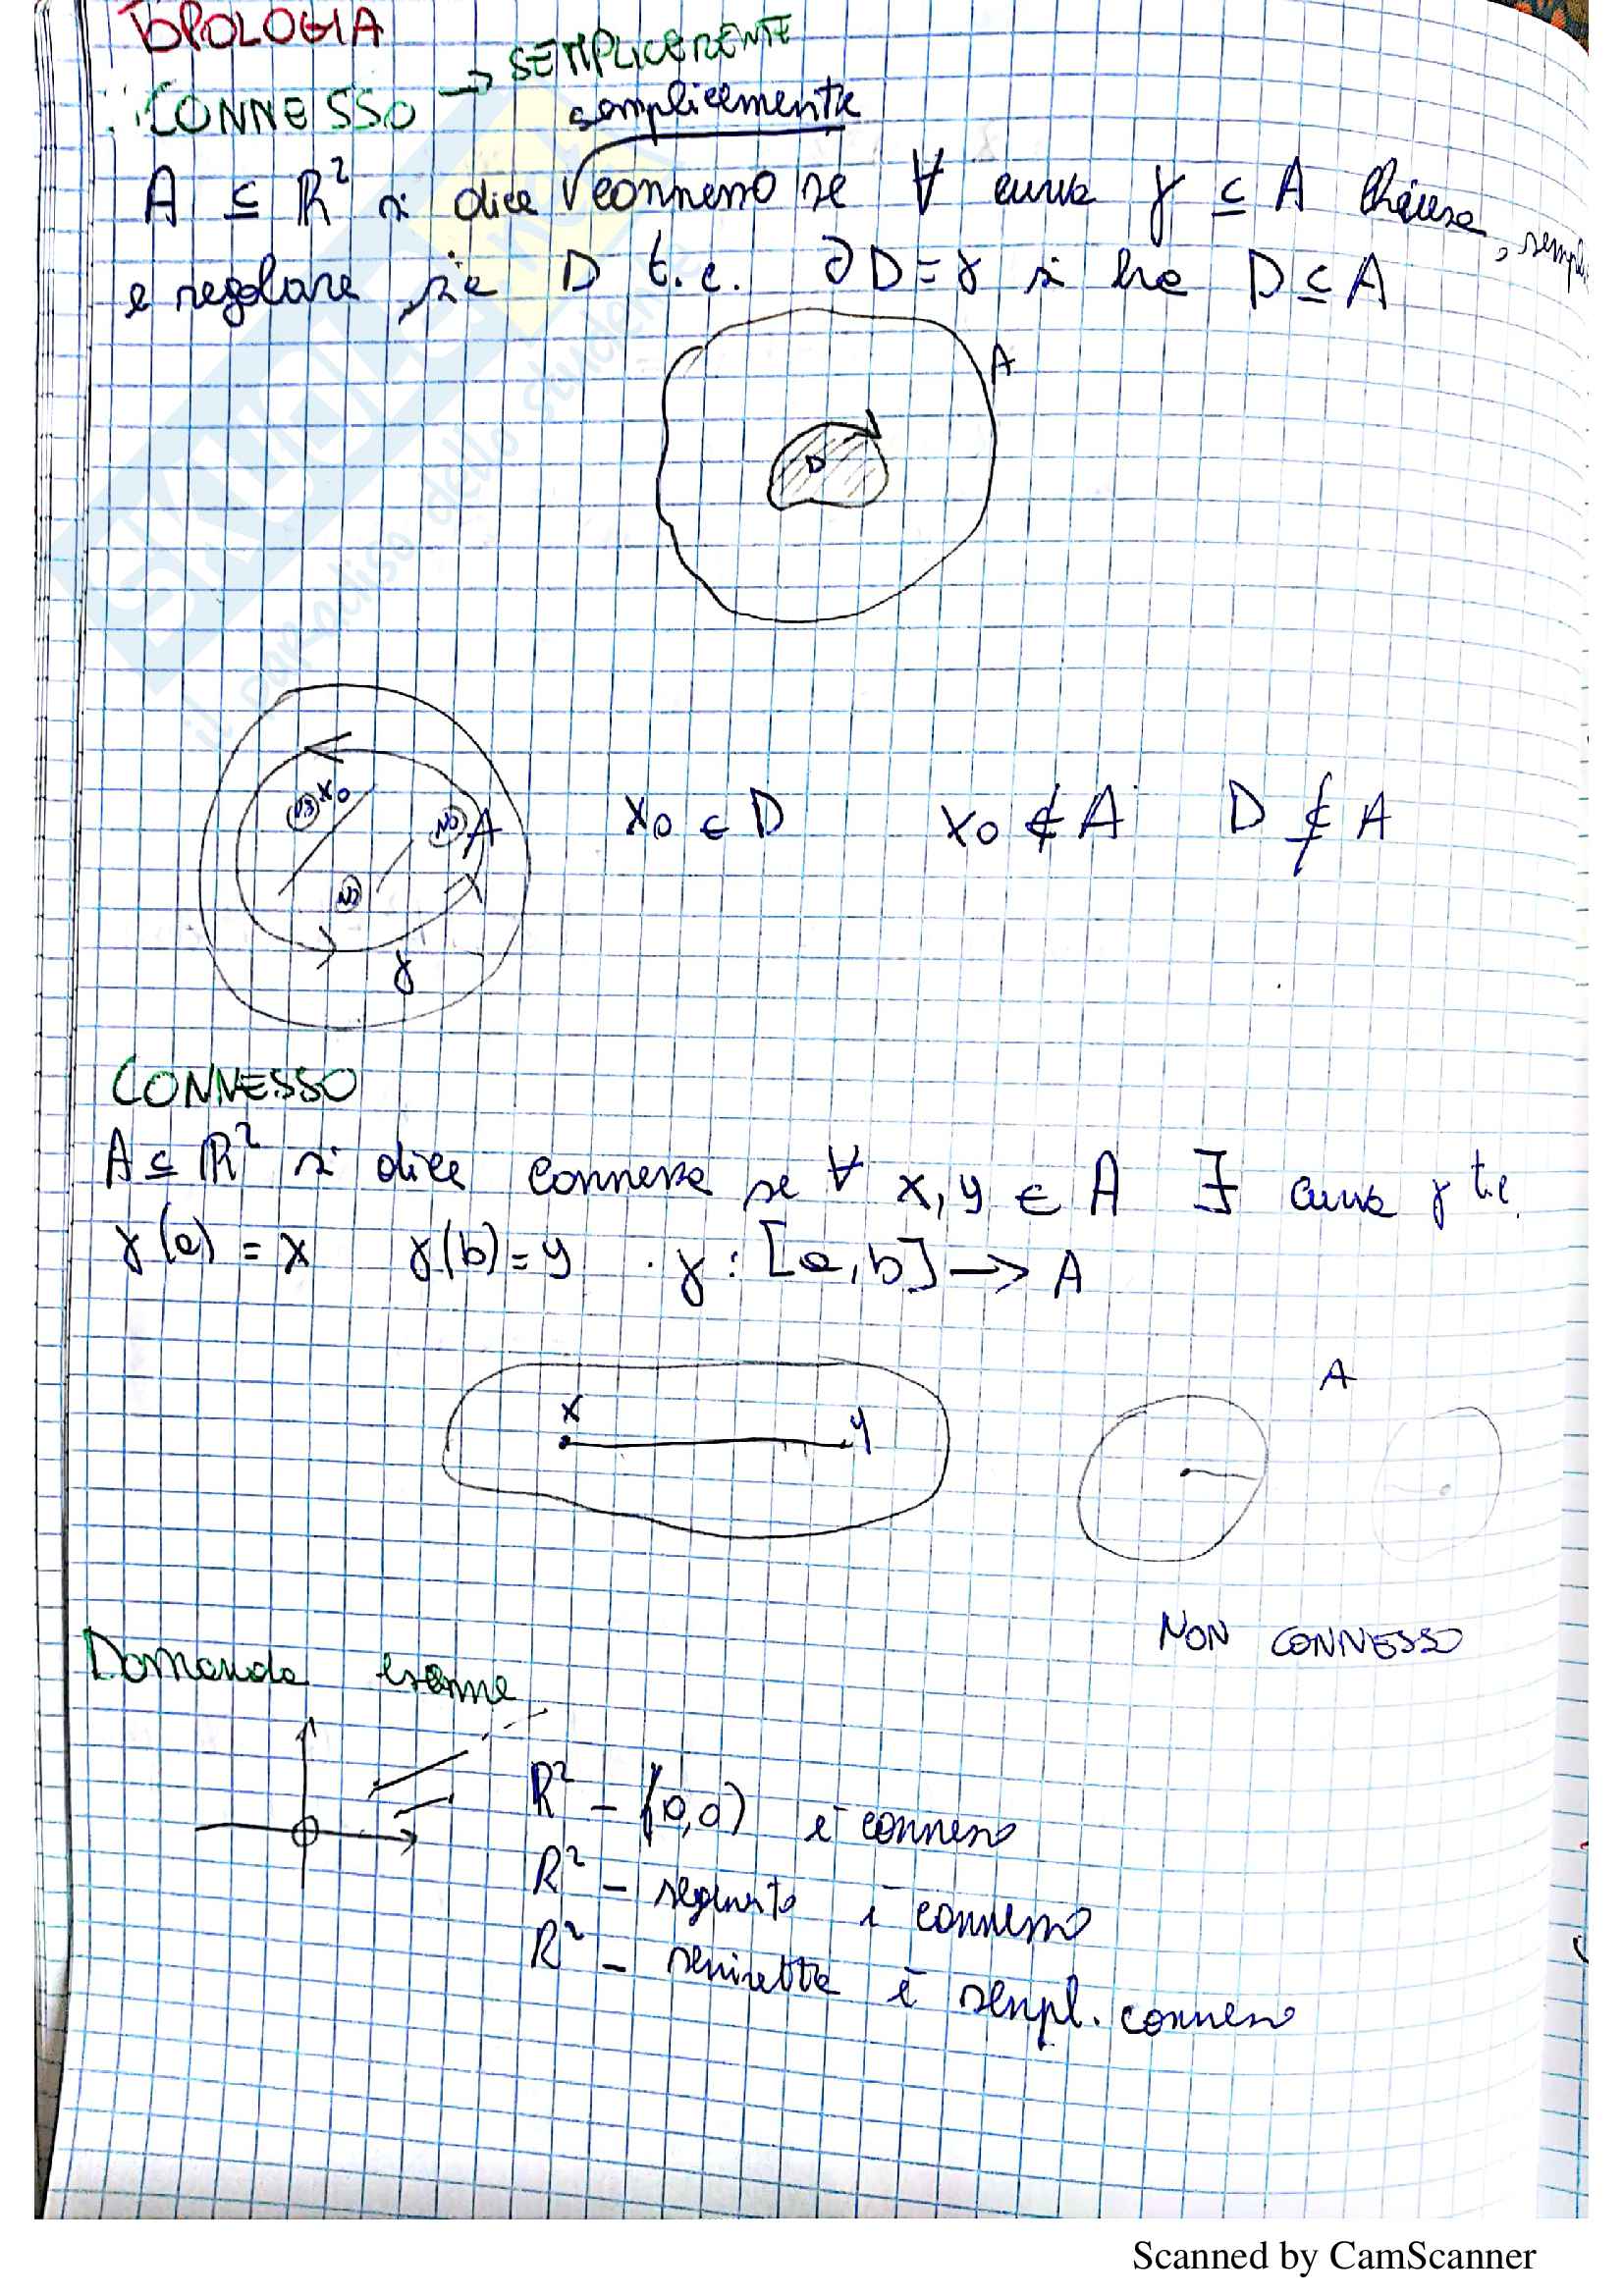 TOPOLOGIA
CONNESSO → SEMPLICEMENTE
semplicemente
A ⊆ R² si dice connesso se ∀ curva γ ⊆ A chiusa, sempl
e regolare, sia D t.c. ∂D = γ si ha D ⊆ A
A
D
x₀
NO
NO A
NO
γ
x₀ ∈ D x₀ ∉ A D ⊄ A
CONNESSO
A ⊆ R² si dice connesso se ∀ x, y ∈ A ∃ curva γ t.c.
γ(a) = x γ(b) = y γ: [a, b] → A
x y
A
NON CONNESSO
Domanda esame
R² - (0,0) è connesso
R² - segmento è connesso
R² - semiretta è sempl. connesso
SKUOLA
il paradiso dello studente
Scanned by CamScanner